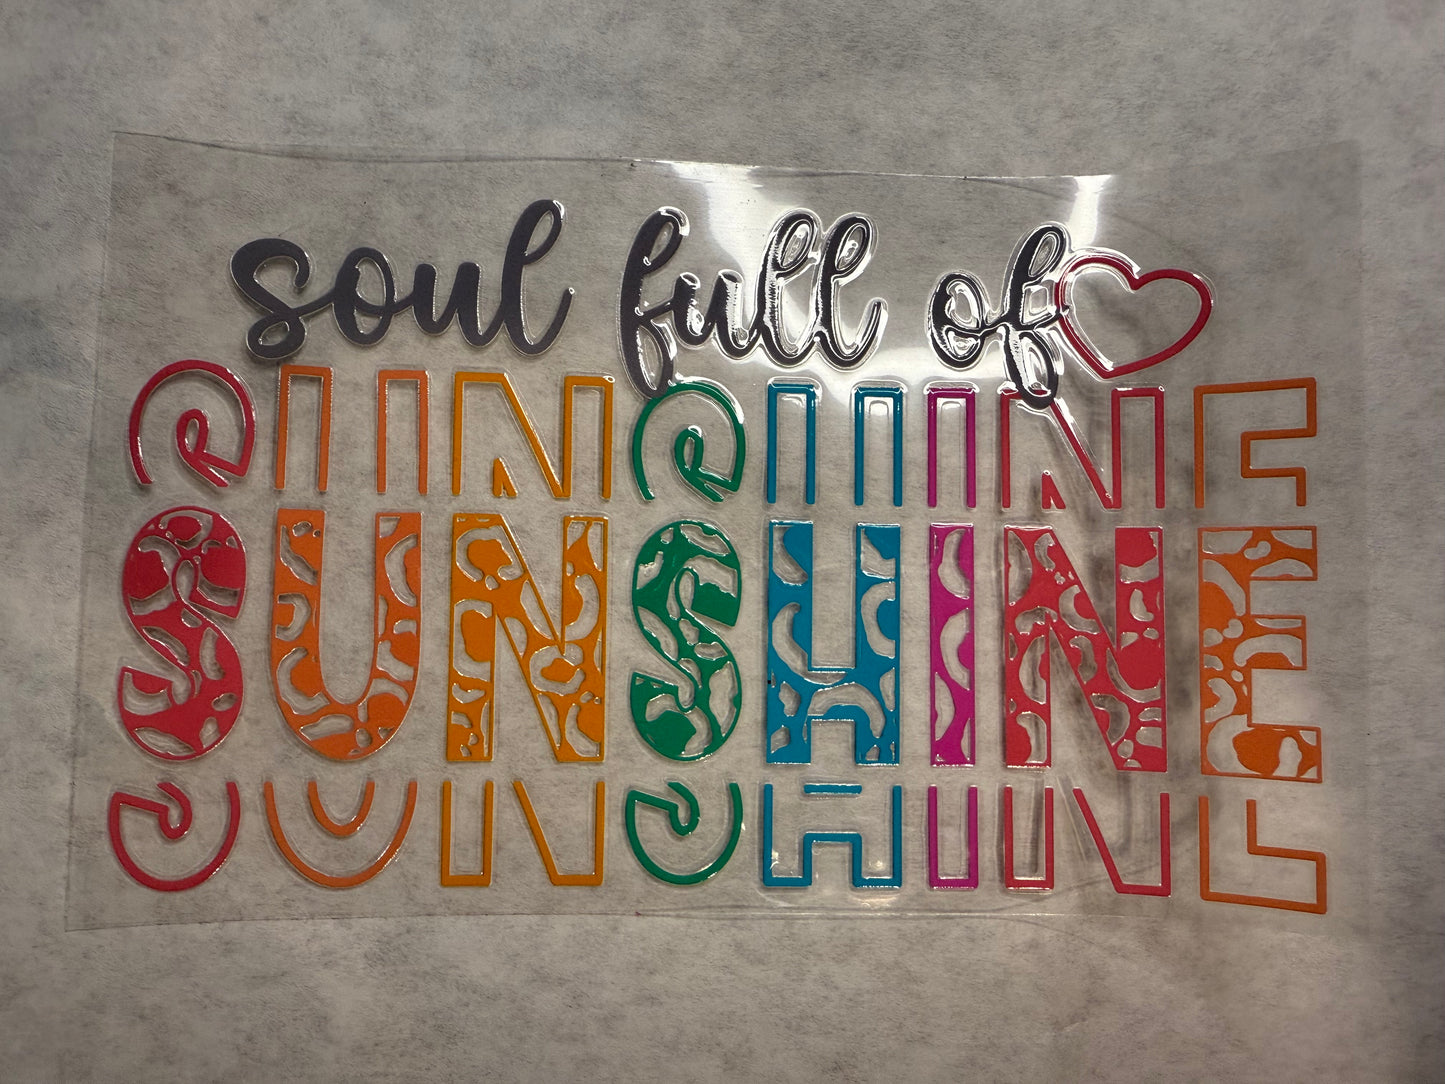 soul full of
SUNSHINE
SUNSHINE
SUNSHINE